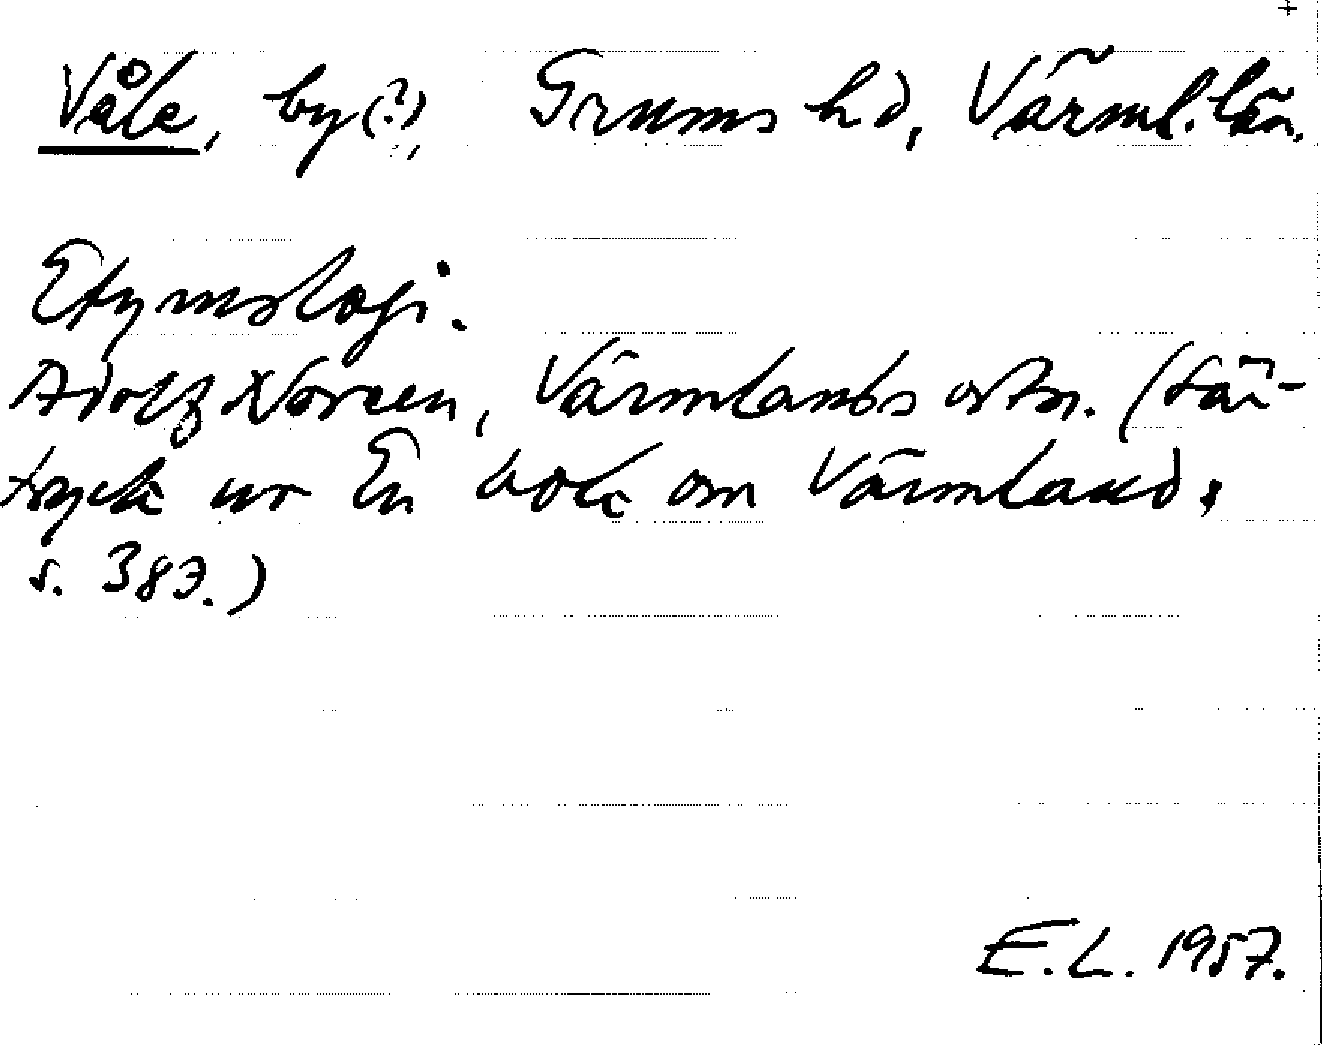 +
Våle, by(?), Grums hd, Värml. län.
Etymologi.
Adolf Noreen, Värmlands ortn. (Sär-
tryck ur En bok om Värmland,
s. 383.)
E.L. 1957.